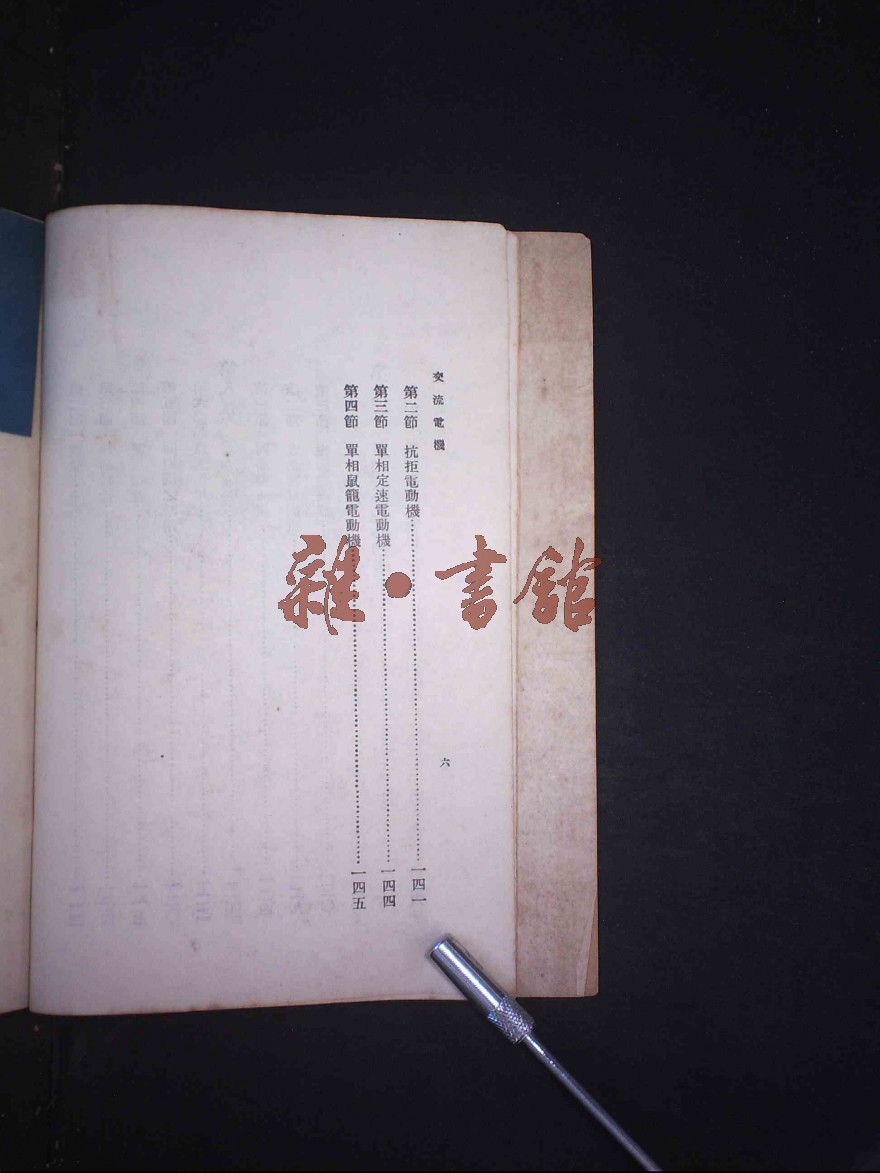 交流電機
六
第二節 抗拒電動機…………一四一
第三節 單相定速電動機…………一四四
第四節 單相鼠籠電動機…………一四五
雜•書館